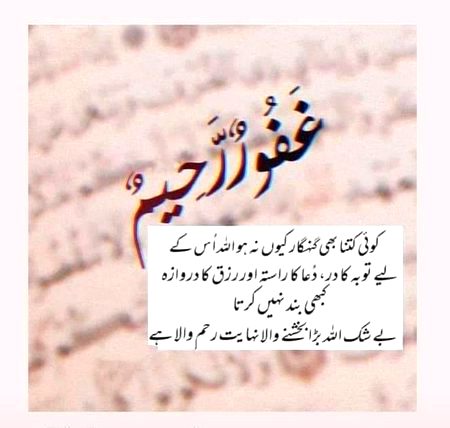 غَفُورٌ رَّحِيمٌ
کوئی کتنا بھی گنہگار کیوں نہ ہو اللہ اُس کے
لیے توبہ کا در، دُعا کا راستہ اور رزق کا دروازہ
کبھی بند نہیں کرتا
بے شک اللہ بڑا بخشنے والا نہایت رحم والا ہے